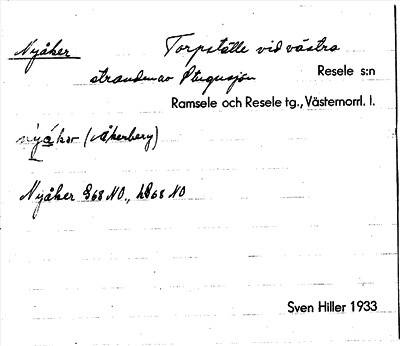 Nyåker Torpställe vid västra
stranden av Resele s:n
Ramsele och Resele tg., Västernorrl. l.
(Åkerberg)
Nyåker 68 NO., 68 NO
Sven Hiller 1933